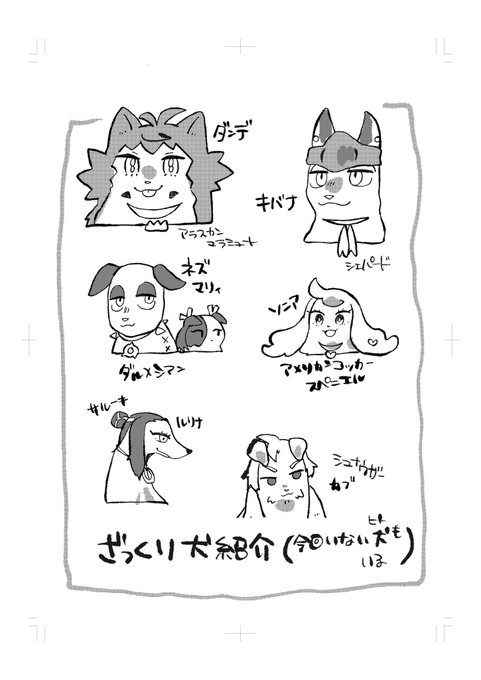 ダンデ
アラスカン
マラミュート
キバナ
シェパード
ネズ
マリィ
ダルメシアン
ソニア
アメリカンコッカー
スパニエル
サルーキ
ルリナ
シュナウザー
ネブ
ざっくり犬紹介(今回いない犬もいる)
ヒト